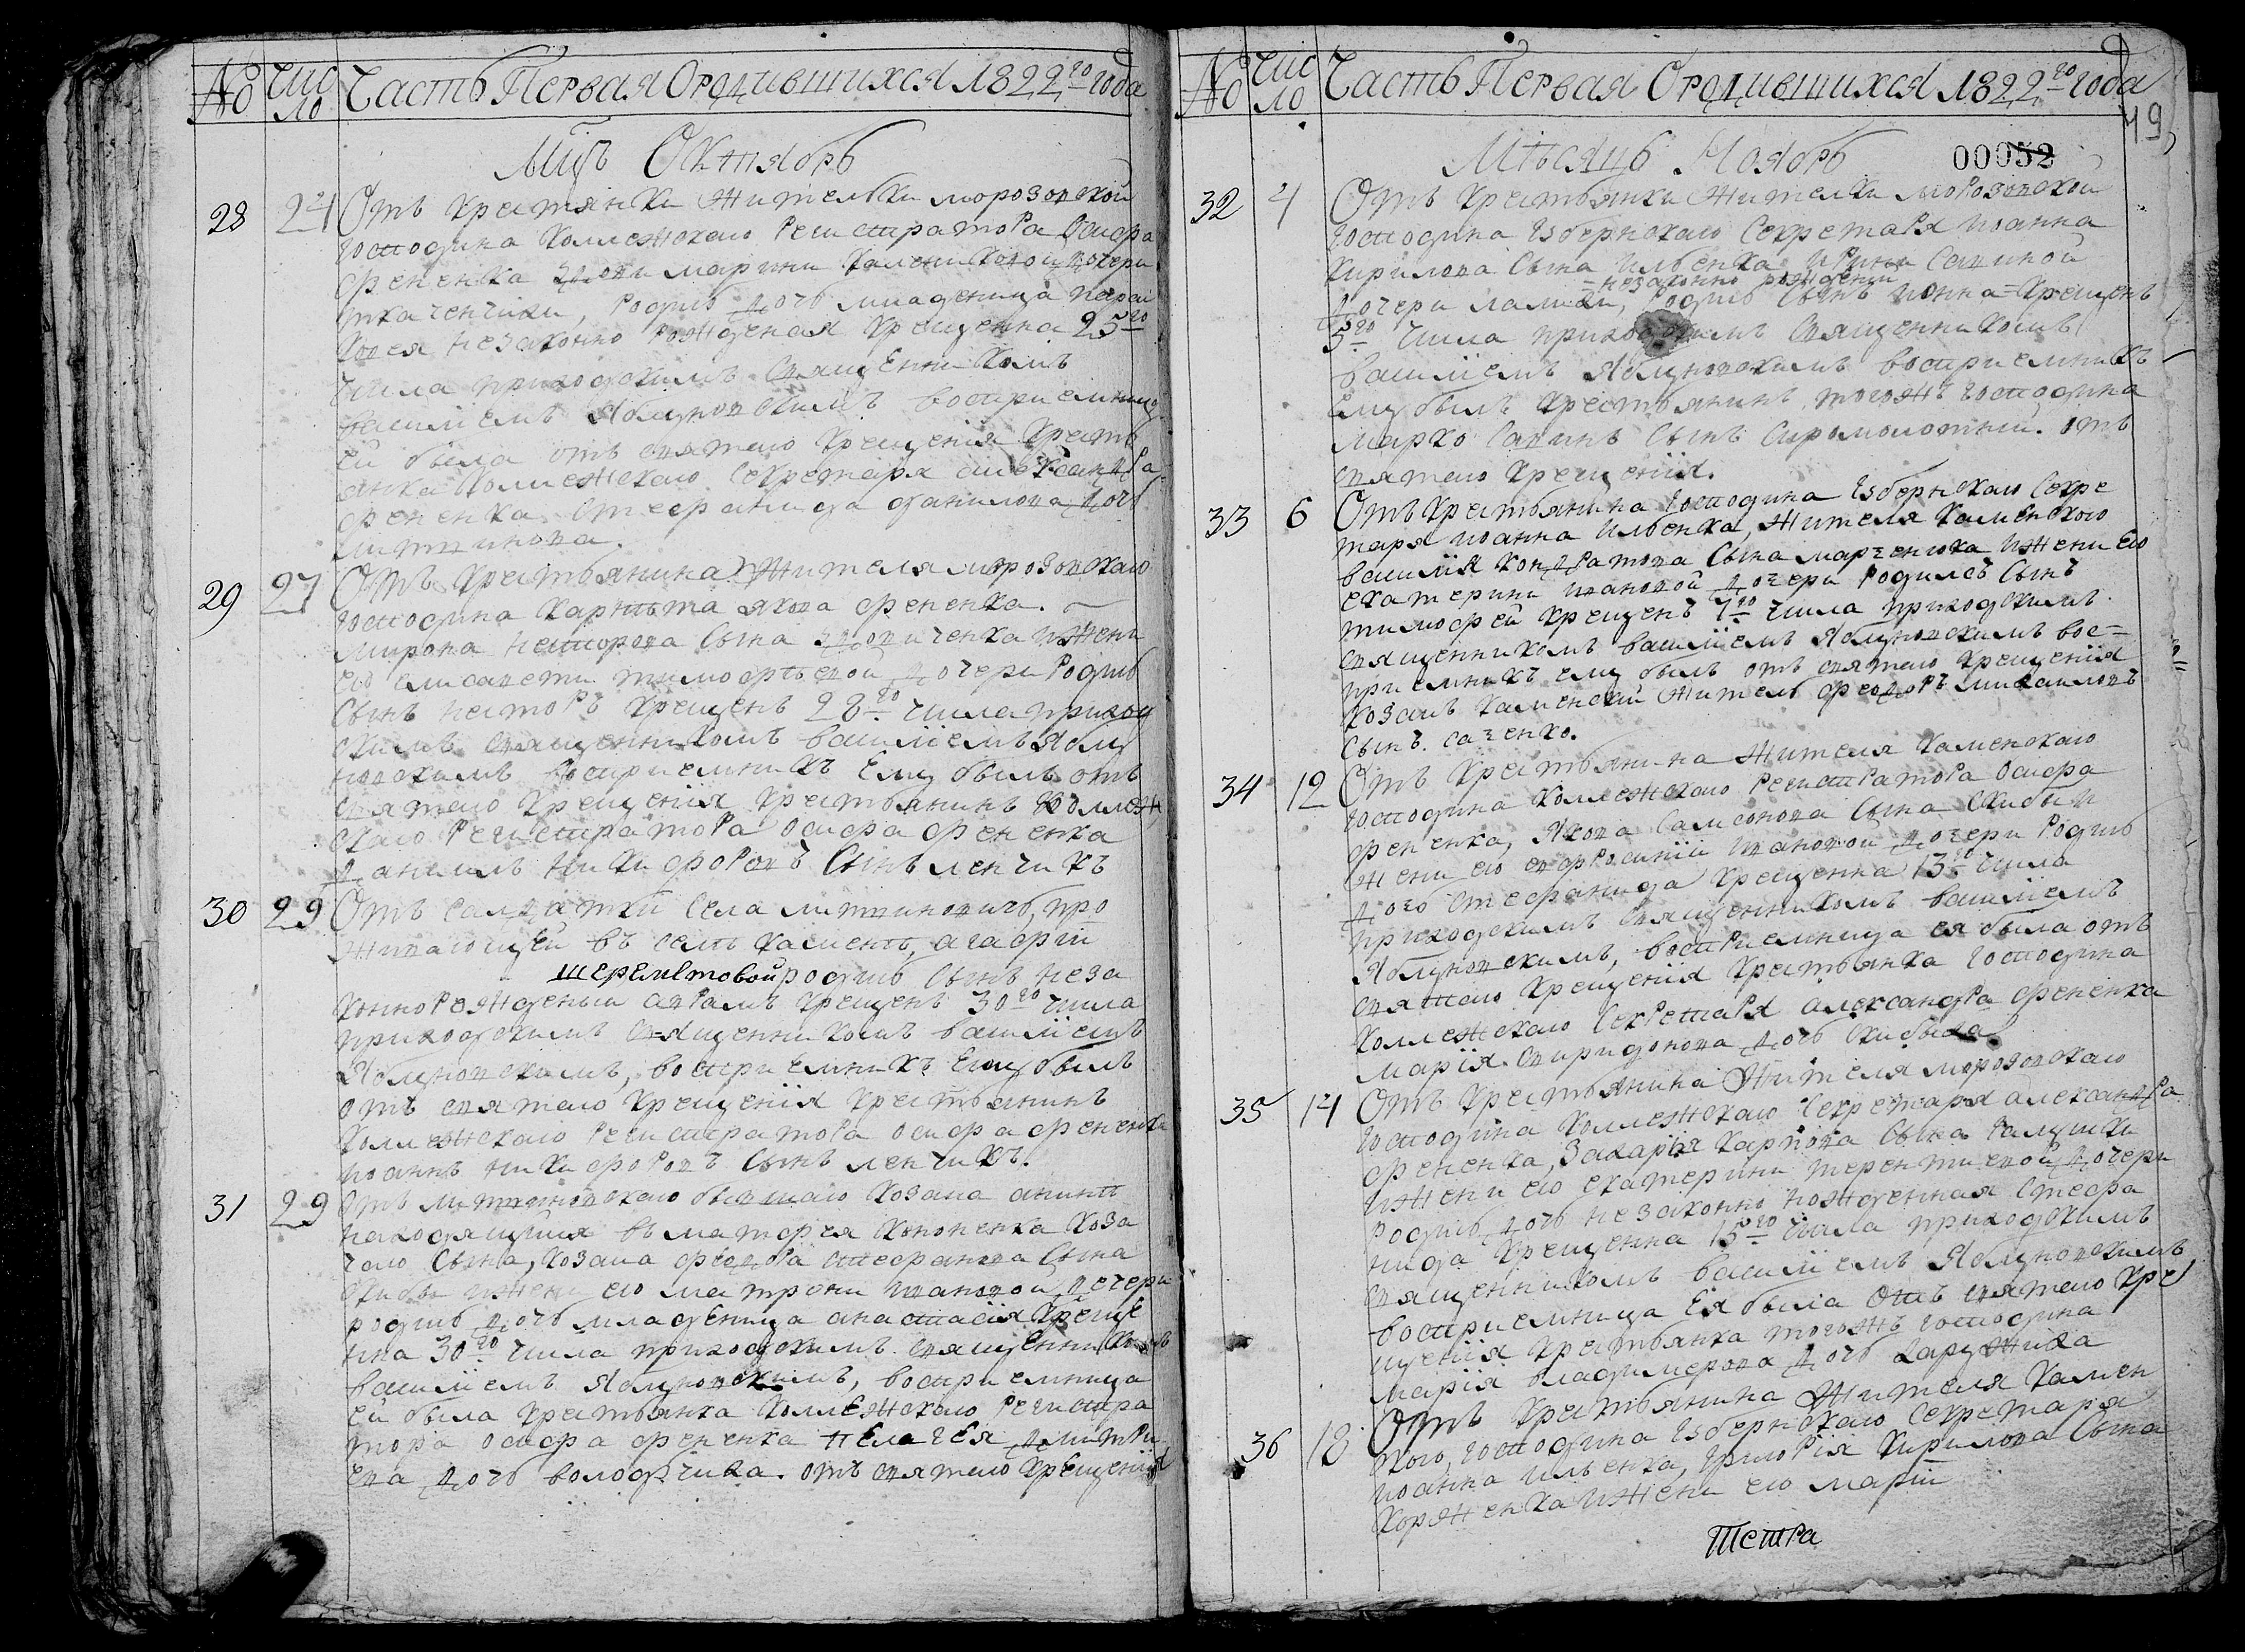 № Чис
ло
Часть Первая Ородившихся 1822го года
Мцъ Октябрь
28 24 Отъ крестянки жителки морозовской
господина коллежскаго регистратора осифа
фененка вдови марини калениковой дочери
ткаченчики, родись дочь младеница парас
ковея незаконно рожденая крещенна 25го
числа приходскимъ священникомъ
василіемъ яблуновскимъ воспріемница
ей была отъ святаго крещенія кресть
янка коллежскаго секретаря александра
фененка стефанида данилова дочь
литвинова.
29 27 Отъ крестьянина жителя морозовскаго
господина карнѣта якова фененка.
мирона несторова сына вдовиченка ижени
его елисавети тимофѣевой дочери родись
сынъ несторъ крещенъ 28го числа приход
скимъ священникомъ василіемъ яблу
новскимъ воспріемникъ ему былъ отъ
святаго крещенія крестьянинъ коллеж
скаго регистратора осифа фененка
даниилъ никифоровъ сынъ ленчикъ
30 29 Отъ салдатки села литвиновичь, про
живающей въ селѣ каменѣ, агафіи
шереметовой родись сынъ неза
конно рожденый аврамъ крещенъ 30го числа
приходскимъ священникомъ василіемъ
Яблуновскимъ, воспріемникъ ему былъ
отъ святаго крещенія крестьянинъ
коллежскаго регистратора осифа фененка
иоаннъ никифоровъ сынъ ленчикъ.
31 29 Отъ литвиновскаго бывшаго козака
находящийся матфея кононенка коза
чаго сына, козака феодора стефанова сына
скиби ижени его матрони ивановой дочери
родись дочь младеница анастасія креще
нна 30го числа приходскимъ священникомъ
василіемъ яблуновскимъ, воспріемница
ей была крестьянка коллежскаго регистра
тора осифа фененка пелагея дмитрі
ева дочь володчиха. отъ святаго крещенія
№ Чис
ло
Часть Первая Ородившихся 1822го года
49
Мѣсяць Ноябрь 00052
32 4 Отъ крестьянки жителки морозовской
господина губернскаго секретаря иоанна
кирилова сына ильенка ирини савиной
= незаконно рожденій
дочери ламаки, родись сынъ иоанна = крещенъ
5го числа приходскимъ священникомъ
василіемъ яблуновскимъ воспріемникъ
ему былъ крестьянинъ тогожъ господина
марко савинъ сынъ сиромолотний. отъ
святаго крещенія.
33 6 Отъ крестьянина господина губернскаго секре
таря иоанна ильенка, жителя каменского
василія кондратова сына марченка ижени его
екатерини ивановой дочери родилсь сынъ
тимофей крещенъ 7го числа приходскимъ
священникомъ василіемъ яблуновскимъ вос=
приемникъ ему былъ отъ святаго крещенія
козакъ каменскій житель феодоръ михаиловъ
сынъ. саченко.
34 12 Отъ крестьянина жителя каменскаго
господина коллежскаго регистратора осифа
фененка, якова самсонова сына скиби и
жени его евфросиніи ивановой дочери родись
дочь стефанида крещенна 13го числа
приходскимъ священникомъ василіемъ
Яблуновскимъ, воспріемница ея была отъ
святаго крещенія крестьянка господина
коллежскаго секретаря александра фененка
марія. спиридонова дочь скибиха
35 14 Отъ крестьянина жителя морозовскаго
господина коллежскаго секретаря александра
фененка, захарія карпова сына галушки
ижени его екатерини терентиевой дочери
родись дочь незаконно рожденная стефа
нида крещенна 15го числа приходскимъ
священникомъ василіемъ яблуновскимъ
воспріемница ея была отъ святаго кре
щенія крестьянка тогожъ господина
марія владимерова дочь
36 18 Отъ крестьянина жителя камен
ского, господина губернскаго секретаря
иоанна ильенка, григорія кирилова сына
корженка ижени его маріи
петра